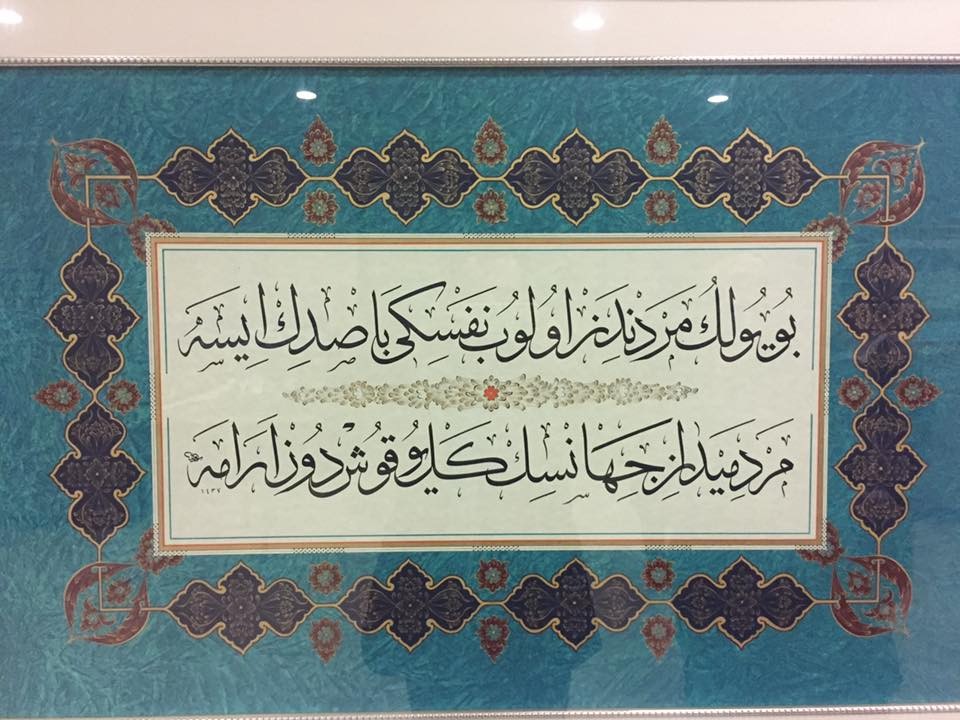 بو يولك مردندن اولوب نفسكى باصدك ايسه
مرد ميدان جهانسك كل يوقوش دوز ارامه
١٤٣٧